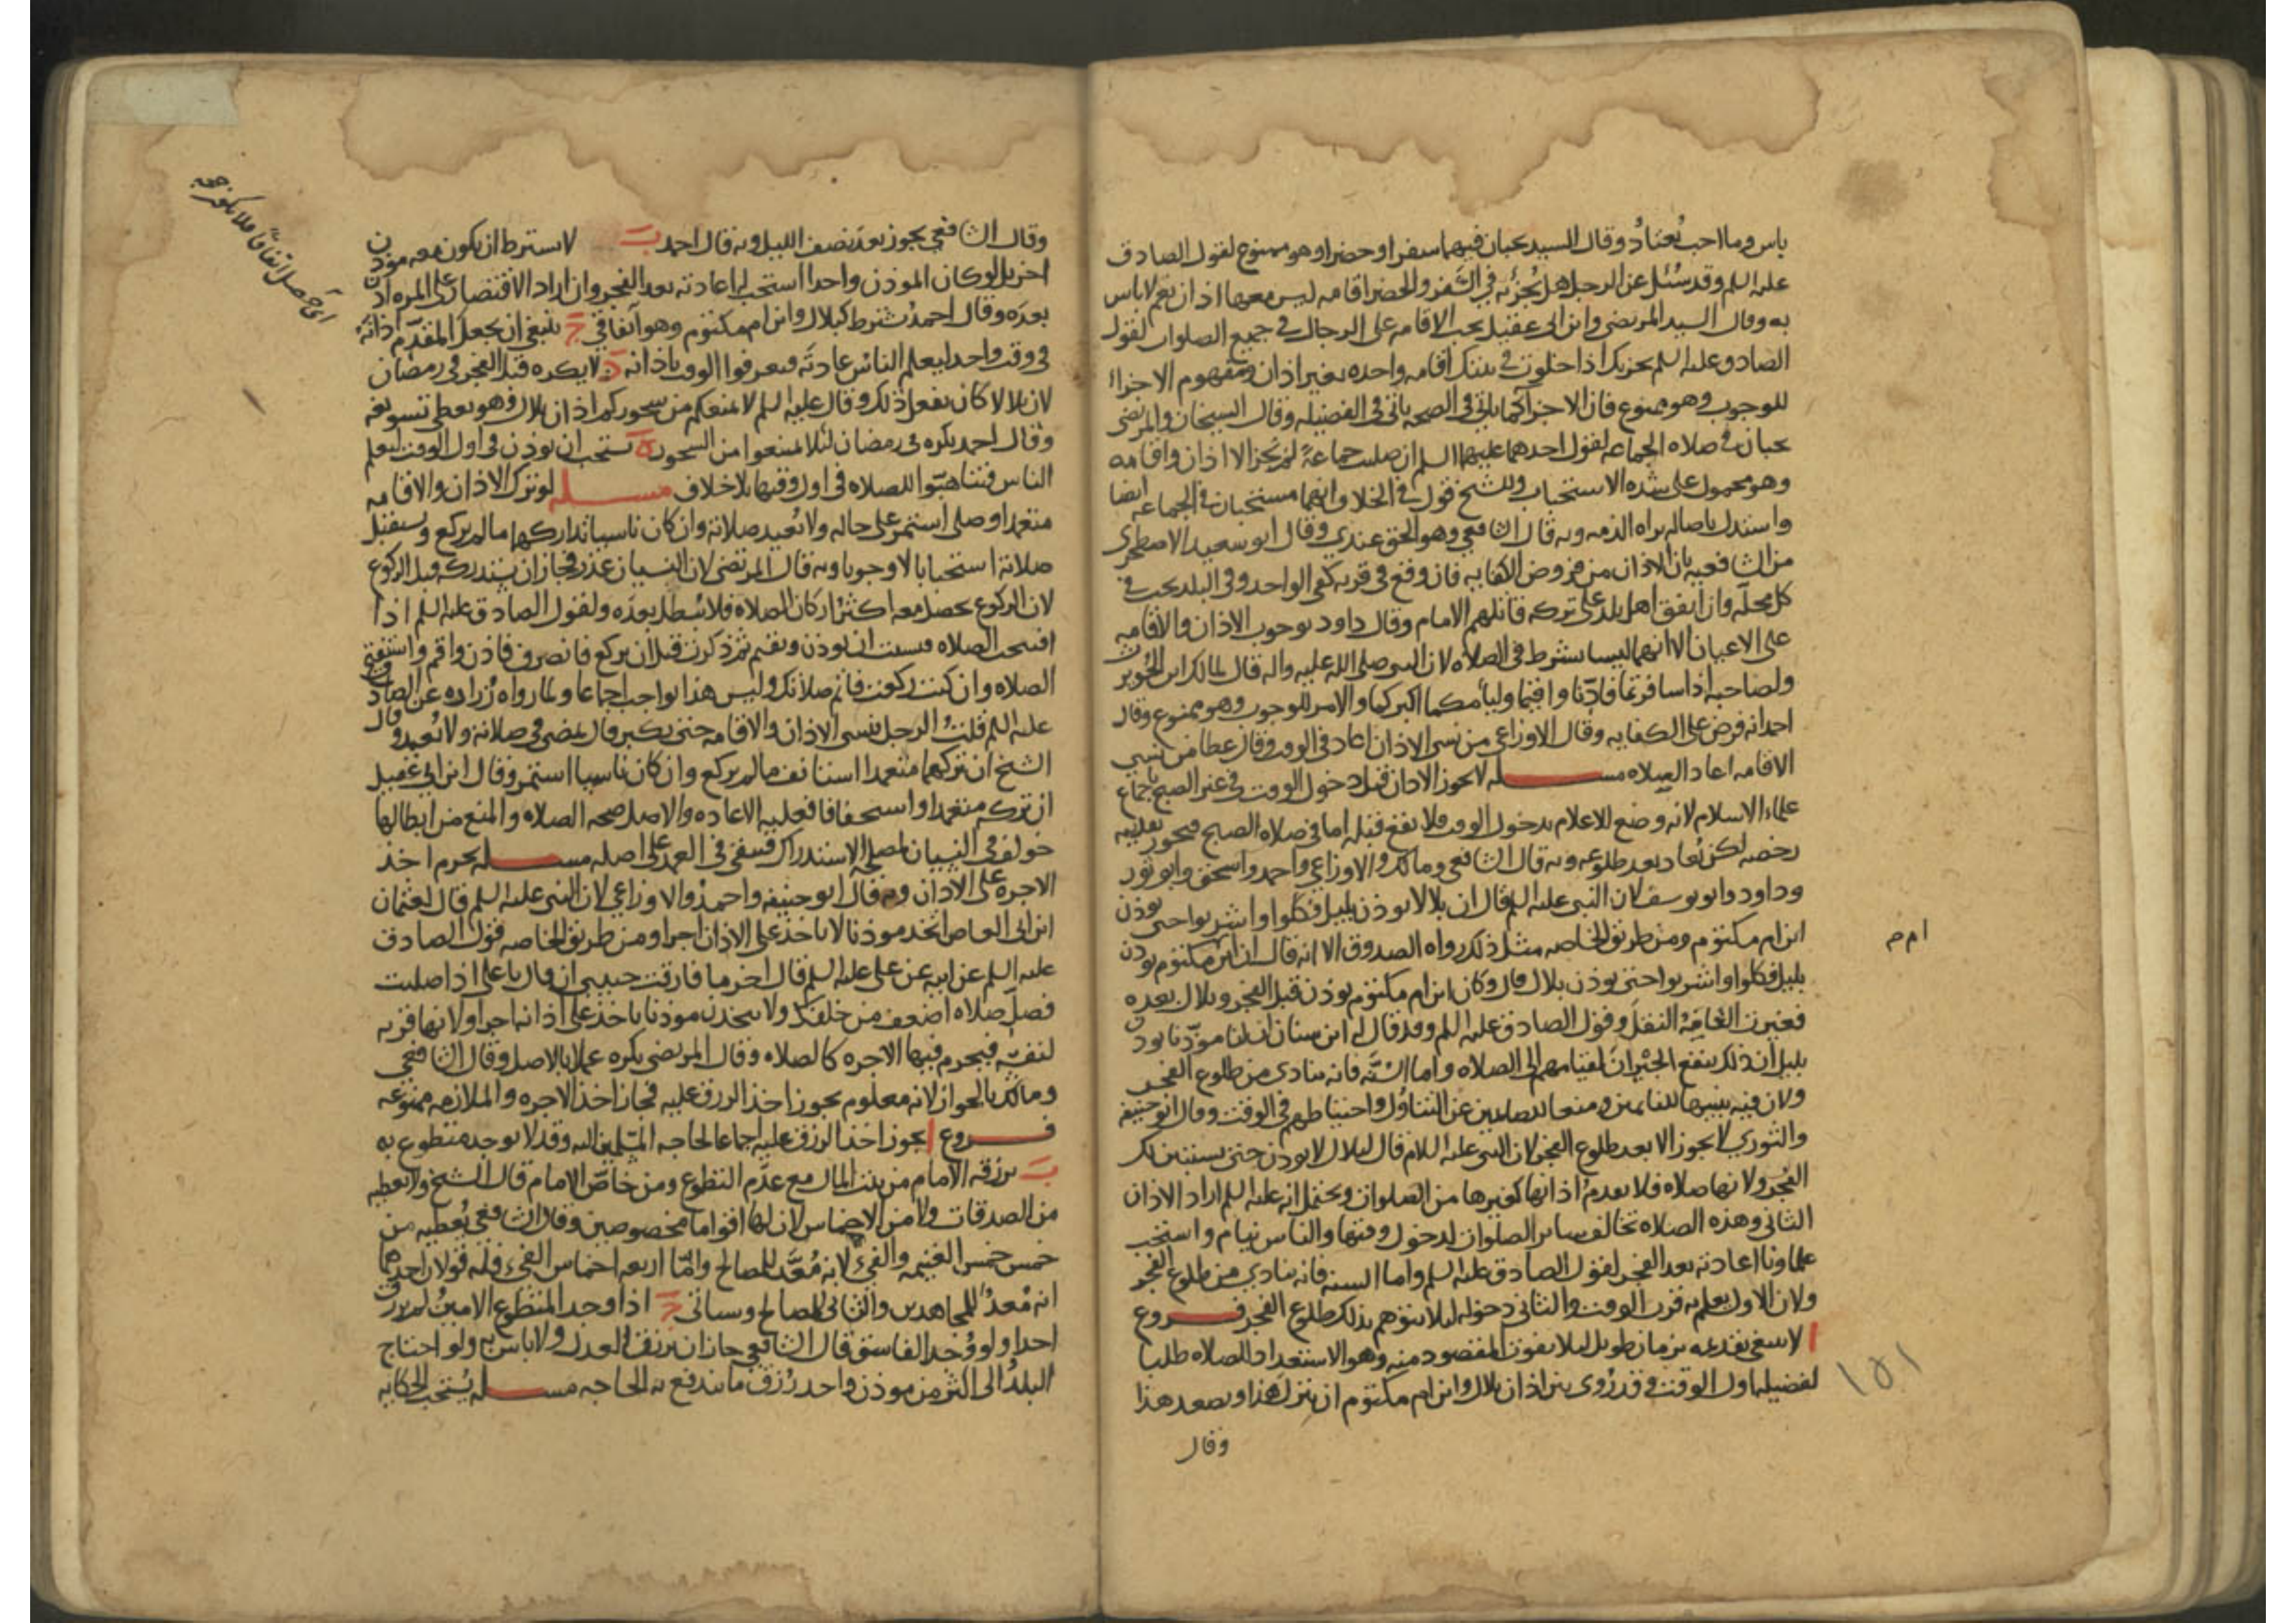 باس وما احب يُعتادُ وقال السيد يجبان فيهما سفرا او حضرا وهو ممنوع لقول الصادق
عليه السلم وقد سُئل عن الرجل هل يُجزئه في السَّفر والحضر اقامه ليس معها اذان نعم لا باس
به وقال السيد المرتضى وابن ابى عقيل يجب الاقامه على الرجال في جميع الصلوات لقول
الصادق عليه السلم يجزيك اذا خلوت في بيتك اقامه واحده بغير اذان ومفهوم الاجزاء
للوجوب وهو ممنوع فان الاجزآ كما ياتى فى الصحه ياتى فى الفضيله وقال الشيخان والمرتضى
يجبان في صلاه الجماعه لقول احدهما عليهما السلم ان صليت جماعةً لم يجز الا اذان واقامه
وهو محمول على شده الاستحباب وللشيخ قول في الخلاف انهما مستحبان في الجماعه ايضا
واستدل باصاله براه الذمه وبه قال الشافعي وهو الحق عندي وقال ابو سعيد الاصطخري
من الشافعيه بان الاذان من فروض الكفايه فان وقع في قريه كفى الواحد وفى البلد يجب في
كل محلّه وان اتفق اهل بلد على تركه قاتلهم الامام وقال داود بوجوب الاذان والاقامه
على الاعيان الا انهما ليسا بشرط فى الصلاه لان النبي صلى الله عليه واله قال لمالك ابن الحُويرث
ولصاحبه اذا سافرتما فاذّنا واقيما وليأمكما اكبركما والامر للوجوب وهو ممنوع وقال
احمد انه فرض على الكفايه وقال الاوزاعي من نسى الاذان اعاد فى الوقت وقال عطا من نسي
الاقامه اعاد الصلاه مسله لا يجوز الاذان قبل دخول الوقت في غير الصبح باجماع
علماء الاسلام لانه وضع للاعلام بدخول الوقت فلا يقع قبله اما فى صلاه الصبح فيجوز تقديمه
رخصه لكن يُعاد بعد طلوعه وبه قال الشافعي ومالك والاوزاعي واحمد واسحق وابو ثور
وداود وابو يوسف لان النبي عليه السلم قال ان بلالا يوذن بليل فكلوا واشربوا حتى يوذن
ابن ام مكتوم ومن طريق الخاصه مثل ذلك رواه الصدوق الا انه قال ان ابن مكتوم يوذن
ام م
بليل فكلوا واشربوا حتى يوذن بلال قال وكان ابن ام مكتوم يوذن قبل الفجر وبلال بعده
فغيرت العامَّةُ النقلَ وقول الصادق عليه السلم وقد قال له ابن سنان ان لنا موذّنا يوذن
بليل ان ذلك ينفع الجيْرانَ لقيامهم الى الصلاه واما السُّنَّه فانه ينادى من طلوع الفجر
ولان فيه تنبيها للنائمين ومنعا للصائمين عن التناوُل واحتياطهم في الوقت وقال ابو حنيفه
والثوري لا يجوز الا بعد طلوع الفجر لان النبي عليه السلام قال لبلال لا يوذن حتى يستبين لك
الفجر ولانها صلاه فلا يقدمُ اذانها كغيرها من الصلوات ويحتمل انه عليه السلم اراد الاذان
الثانى وهذه الصلاه تخالف سائر الصلوات لدخول وقتها والناس نيام واستحب
علماونا اعادته بعد الفجر لقول الصادق عليه السلم واما السنه فانه ينادي من طلوع الفجر
ولان الاول يعلم به قرب الوقت والثانى دخوله ليلا يتوهم بذلك طلوع الفجر فروع
ا لا ينبغى تقدمه بزمان طويل ليلا يفوت المقصود منه وهو الاستعداد للصلاه طلبا
لفضيله اول الوقت وقد رُوى بين اذان بلال وابن ام مكتوم ان ينزل هذا ويصعد هذا
١٥١
وقال
وقال الشافعي يجوز بعد نصف الليل وبه قال احمد ب لا يشترط ان يكون معه موذن
اخر بل لو كان الموذن واحدا استحب له اعادته بعد الفجر وان اراد الاقتصار على المره اذن
بعدَه وقال احمد يُشترط كبلال وابن ام مكتوم وهو اتفاقي ج ينبغى ان يجعل المقدّم اذانهُ
فى وقت واحد ليعلم الناس عادتَه فيعرفوا الوقت باذانه د لا يكره قبل الفجر فى رمضان
لان بلالا كان يفعل ذلك وقال عليه السلم لا يمنعكم من سحوركم اذان بلال وهو يعطى تسويغه
وقال احمد يكره فى رمضان لئلا يمتنعوا من السحور ه يستحب ان يوذن فى اول الوقت ليعلم
الناس فيتاهبّوا للصلاه فى اول وقتها بلا خلاف مسله لو ترك الاذان والاقامه
متعمدا وصلى استمر على حاله ولا يُعيد صلاته وان كان ناسيا تداركهما ما لم يركع ويستقبل
صلاته استحبابا لا وجوبا وبه قال المرتضى لان النسيان عذر فجاز ان يستدركه قبل الركوع
لان الركوع يحصل معه اكثرُ اركان الصلاه فلا يبطل بعده ولقول الصادق عليه السلم اذا
افتتحت الصلاه فنسيت ان توذن وتقيم ثم ذكرت قبل ان تركع فانصرف فاذن واقم واستفتح
الصلاه وان كنت ركعت فاتم صلاتك وليس هذا بواجب اجماعا ولما رواه زُراره عن الصادق
عليه السلم قلتُ الرجل ينسى الاذان والاقامه حتى يكبر قال يمضى في صلاته ولا يُعيد وقال
الشيخ ان تركهما متعمدا استانف ما لم يركع وان كان ناسيا استمر وقال ابن ابي عقيل
ان تركه متعمدا او استخفافا فعليه الاعاده والاصل صحه الصلاه والمنع من ابطالها
خولف في النسيان لمصلحه الاستدراك فبقى في العمد على اصله مسله يحرم اخذ
الاجره على الاذان وبه قال ابو حنيفه واحمدُ والاوزاعي لان النبى عليه السلم قال لعثمان
ابن ابى العاص اتخذ موذنا لا ياخذ على الاذان اجرا ومن طريق الخاصه قول الصادق
عليه السلم عن ابيه عن على عليه السلم قال اخر ما فارقت حبيبي ان قال يا على اذا صليت
فصلّ صلاه اضعف من خلفك ولا تتخذن موذنا ياخذ على اذانه اجرا ولانها قربه
لنفسه فيحرم فيها الاجره كالصلاه وقال المرتضى يكره عملا بالاصل وقال الشافعي
ومالك بالجواز لانه معلوم يجوز اخذ الرزق عليه فجاز اخذ الاجره والملازمه ممنوعه
فروع ا يجوز اخذ الرزق عليه اجماعا لحاجه المسلمين اليه وقد لا يوجد متطوع به
ب يرزقه الامام من بيت المال مع عدم التطوع ومن خاصّ الامام قال الشيخ ولا يعطيه
من الصدقات ولا من الاخماس لان لها اقواما مخصوصين وقال الشافعي يُعطيه من
خمس خمس الغنيمه والفيء لانه مُعَدٌّ للمصالح وامّا اربعه اخماس الفيء فله قولان احدهما
انه مُعدٌّ للمجاهدين والثانى للمصالح وسياتى ج اذا وجد المتطوع الامينُ لم يرزق
احدا ولو وُجد الفاسق قال الشافعي جاز ان يرزق العدل ولا باس به ولو احتاج
البلدُ الى اكثر من موذن واحد رُزق ما يندفع به الحاجه مسله يُستحب الحكايه